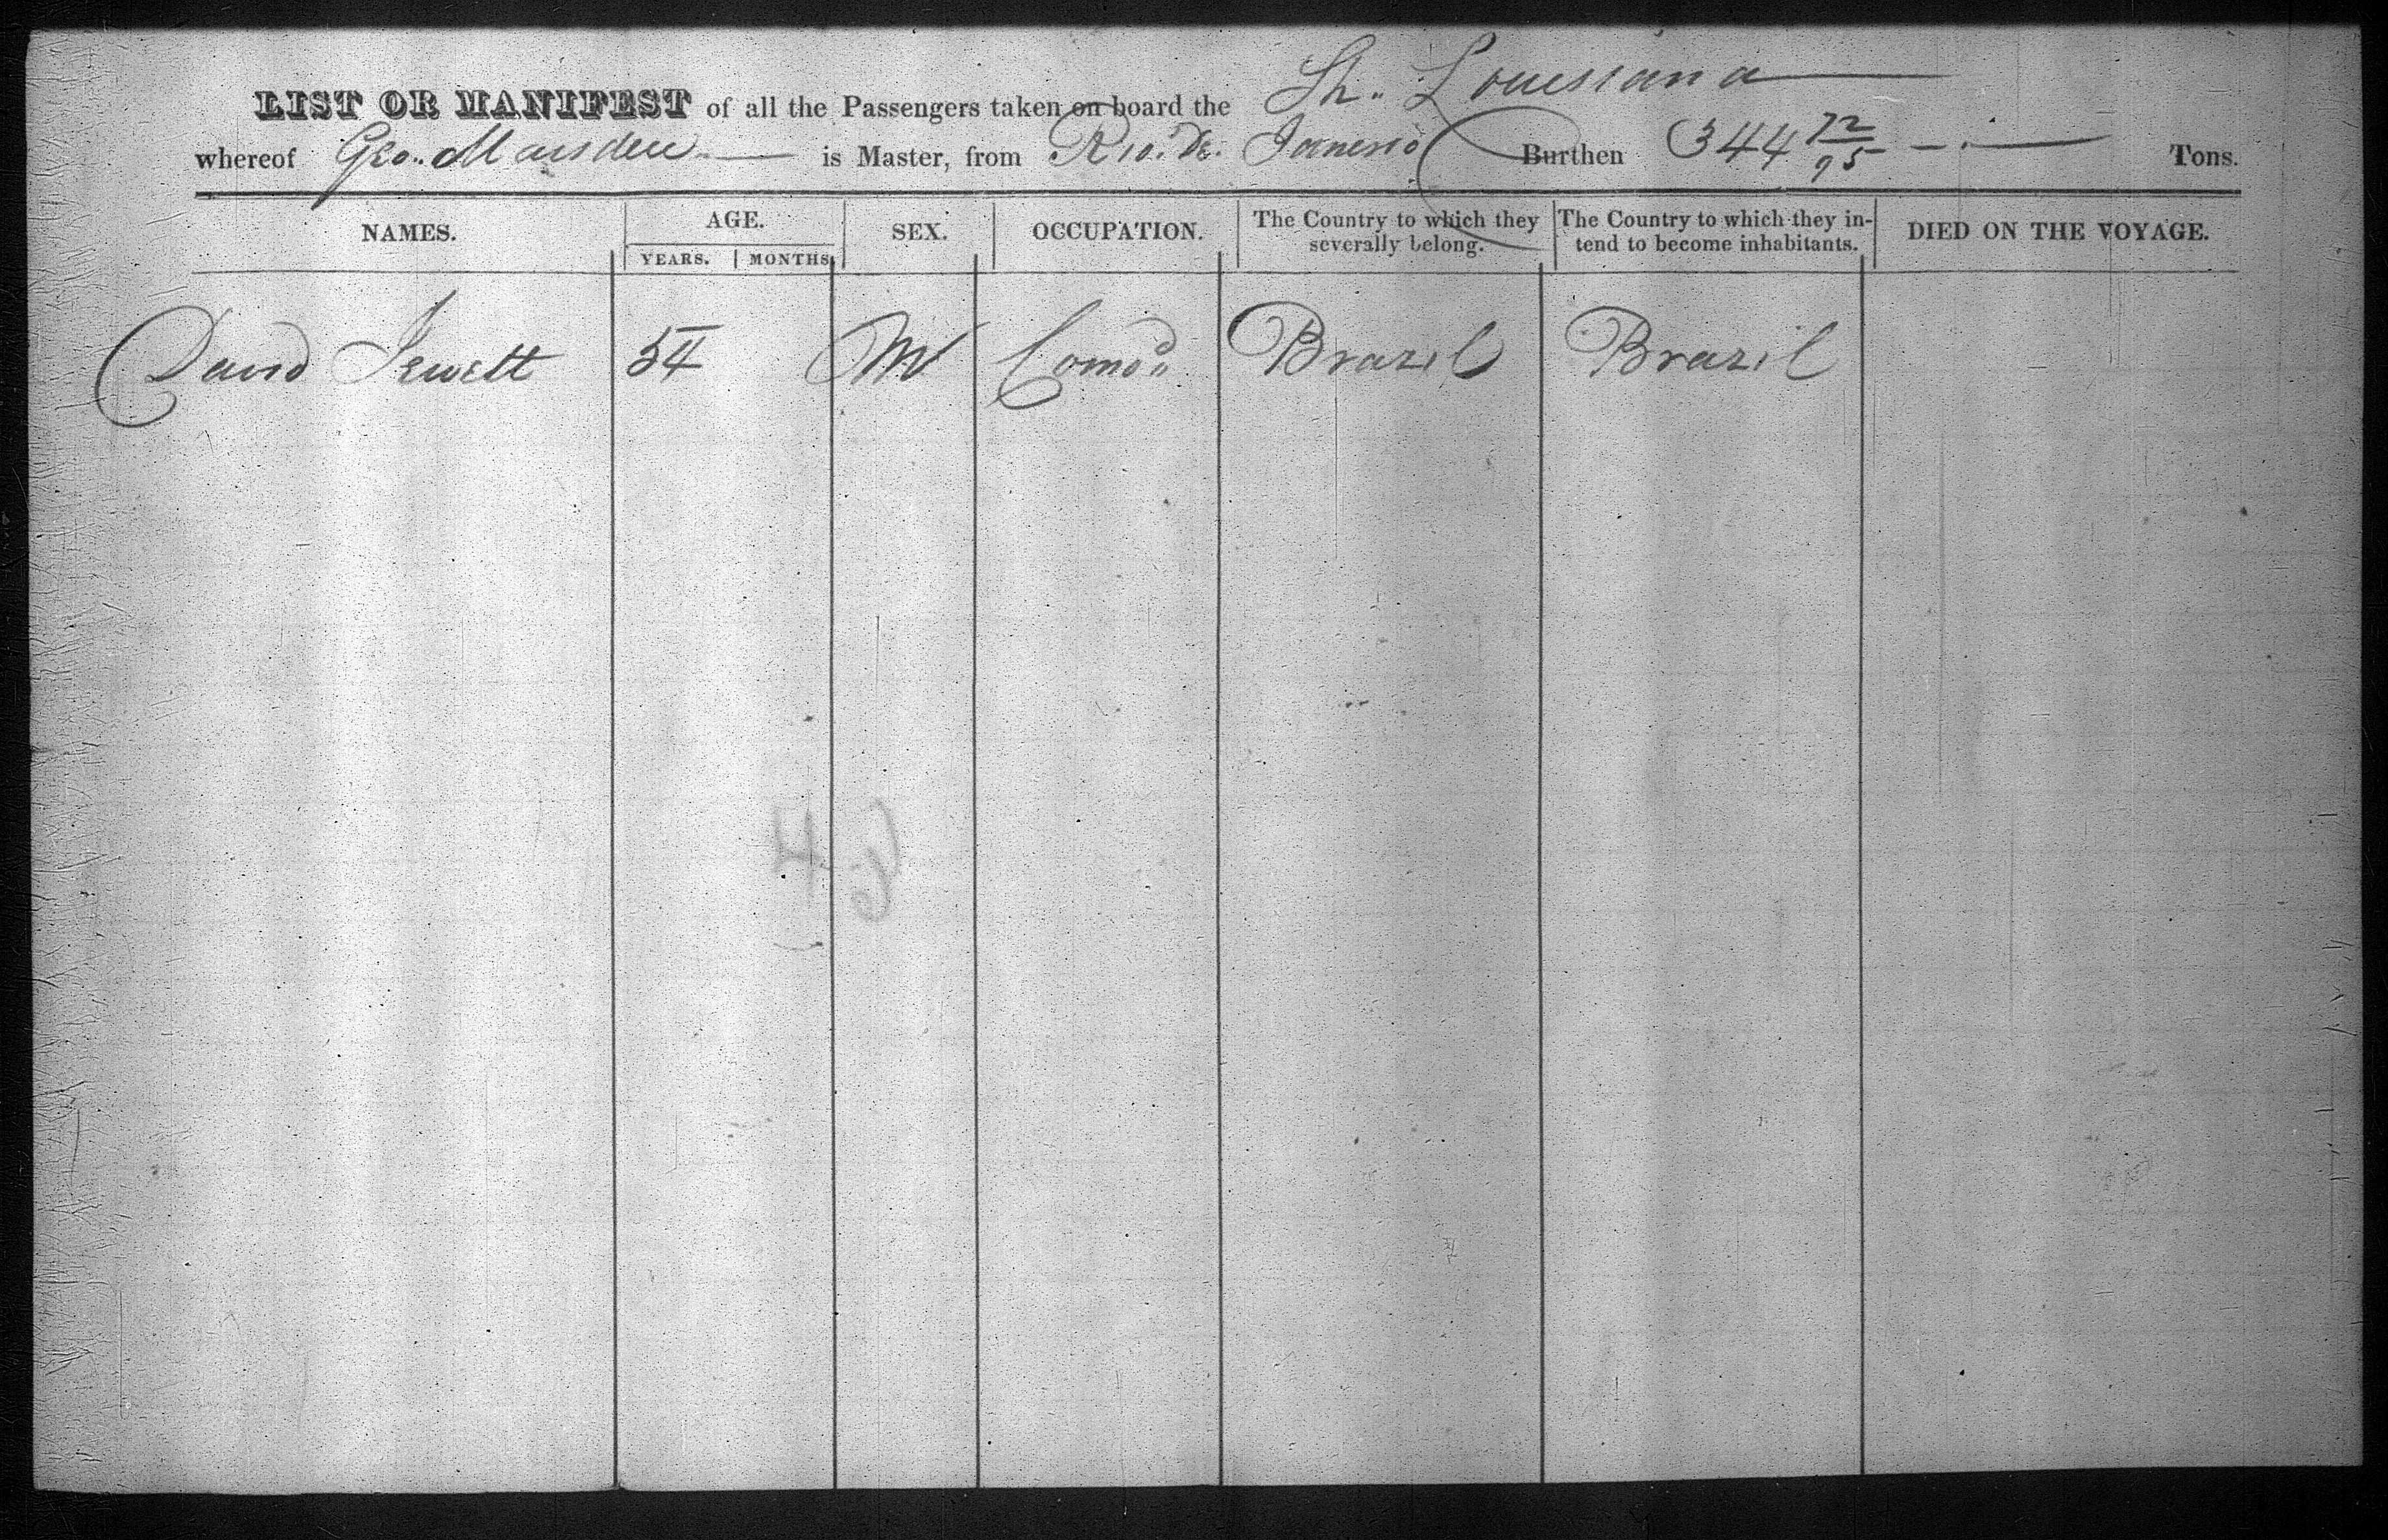 LIST OR MANIFEST of all the Passengers taken on board the Sh. Louisiana
whereof Geo. Marsden is Master, from Rio. De. Janerio Burthen 344 72/95 Tons.
NAMES. AGE. SEX. OCCUPATION. The Country to which they severally belong. The Country to which they intend to become inhabitants. DIED ON THE VOYAGE.
YEARS. MONTHS.
David Jewett 54 M Comod Brazil Brazil
64